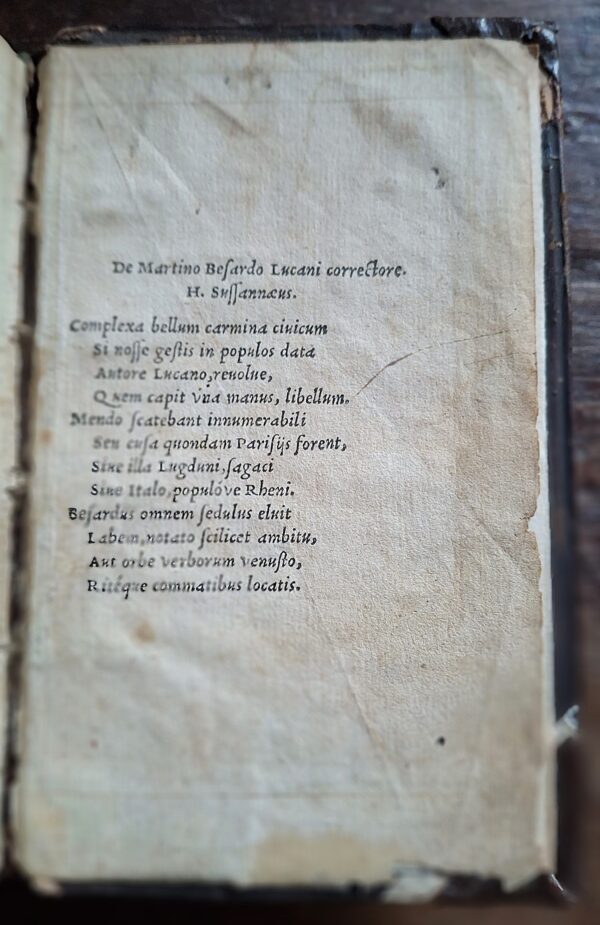 De Martino Beſardo Lucani correctore.
H. Suſſannæus.
Complexa bellum carmina ciuicum
Si noſſe geſtis in populos data
Autore Lucano, reuolue,
Quem capit vna manus, libellum.
Mendo ſcatebant innumerabili
Seu cuſa quondam Pariſijs forent,
Siue illa Lugduni, ſagaci
Siue Italo, populóve Rheni.
Beſardus omnem ſedulus eluit
Labem, notato ſcilicet ambitu,
Aut orbe verborum venuſto,
Ritéque commatibus locatis.